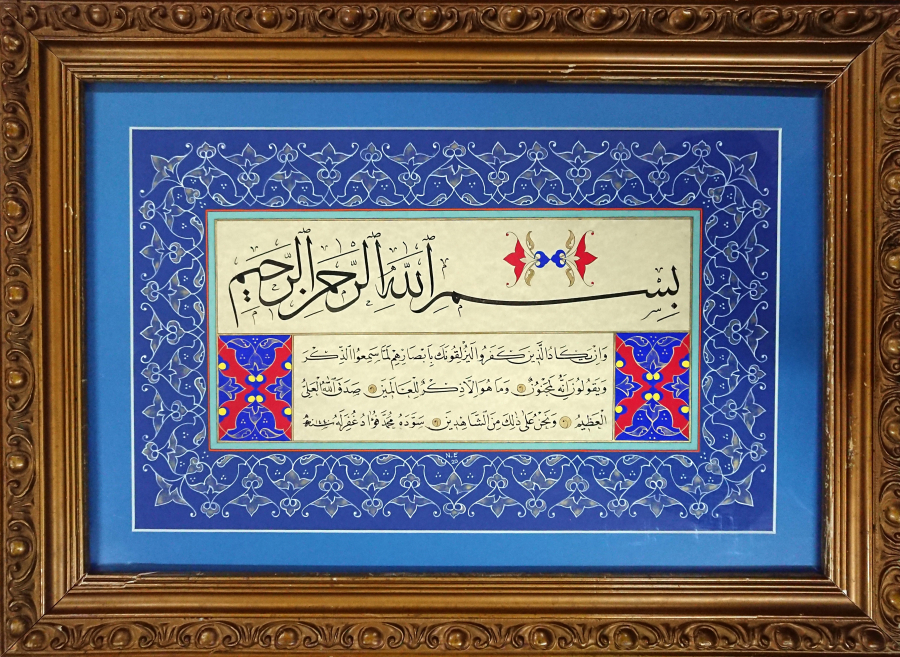 بِسْمِ اللّٰهِ الرَّحْمٰنِ الرَّحِيمِ
وَاِنْ يَكَادُ الَّذِينَ كَفَرُوا لَيُزْلِقُونَكَ بِاَبْصَارِهِمْ لَمَّا سَمِعُوا الذِّكْرَ
وَيَقُولُونَ اِنَّهُ لَمَجْنُونٌ وَمَا هُوَ اِلَّا ذِكْرٌ لِلْعَالَمِينَ صَدَقَ اللّٰهُ الْعَلِيُّ
الْعَظِيمُ وَنَحْنُ عَلَى ذٰلِكَ مِنَ الشَّاهِدِينَ سَوَّدَهُ مُحَمَّد فُؤَاد غُفِرَ لَهُ
N.E